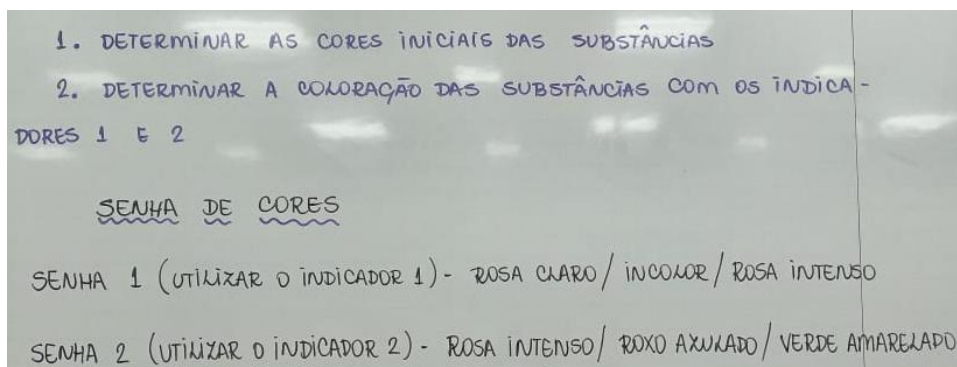 1. DETERMINAR AS CORES INICIAIS DAS SUBSTÂNCIAS
2. DETERMINAR A COLORAÇÃO DAS SUBSTÂNCIAS COM OS INDICA-
DORES 1 E 2
SENHA DE CORES
SENHA 1 (UTILIZAR O INDICADOR 1) - ROSA CLARO / INCOLOR / ROSA INTENSO
SENHA 2 (UTILIZAR O INDICADOR 2) - ROSA INTENSO / ROXO AZULADO / VERDE AMARELADO